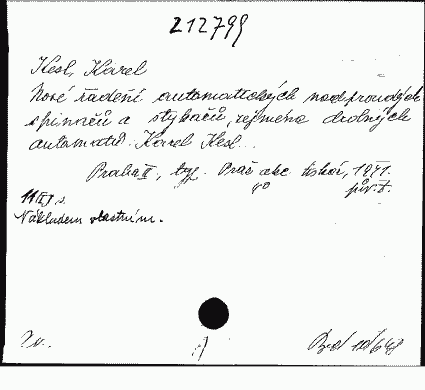 212799
Kesl, Karel
Nové řadění automatických nadproudých
spínačů a stykačů, zejména drobných
automatů. Karel Kesl...
Praha II, typ. Praž. akc. tiskár, 1941.
8°
11 s.
Nákladem vlastním.